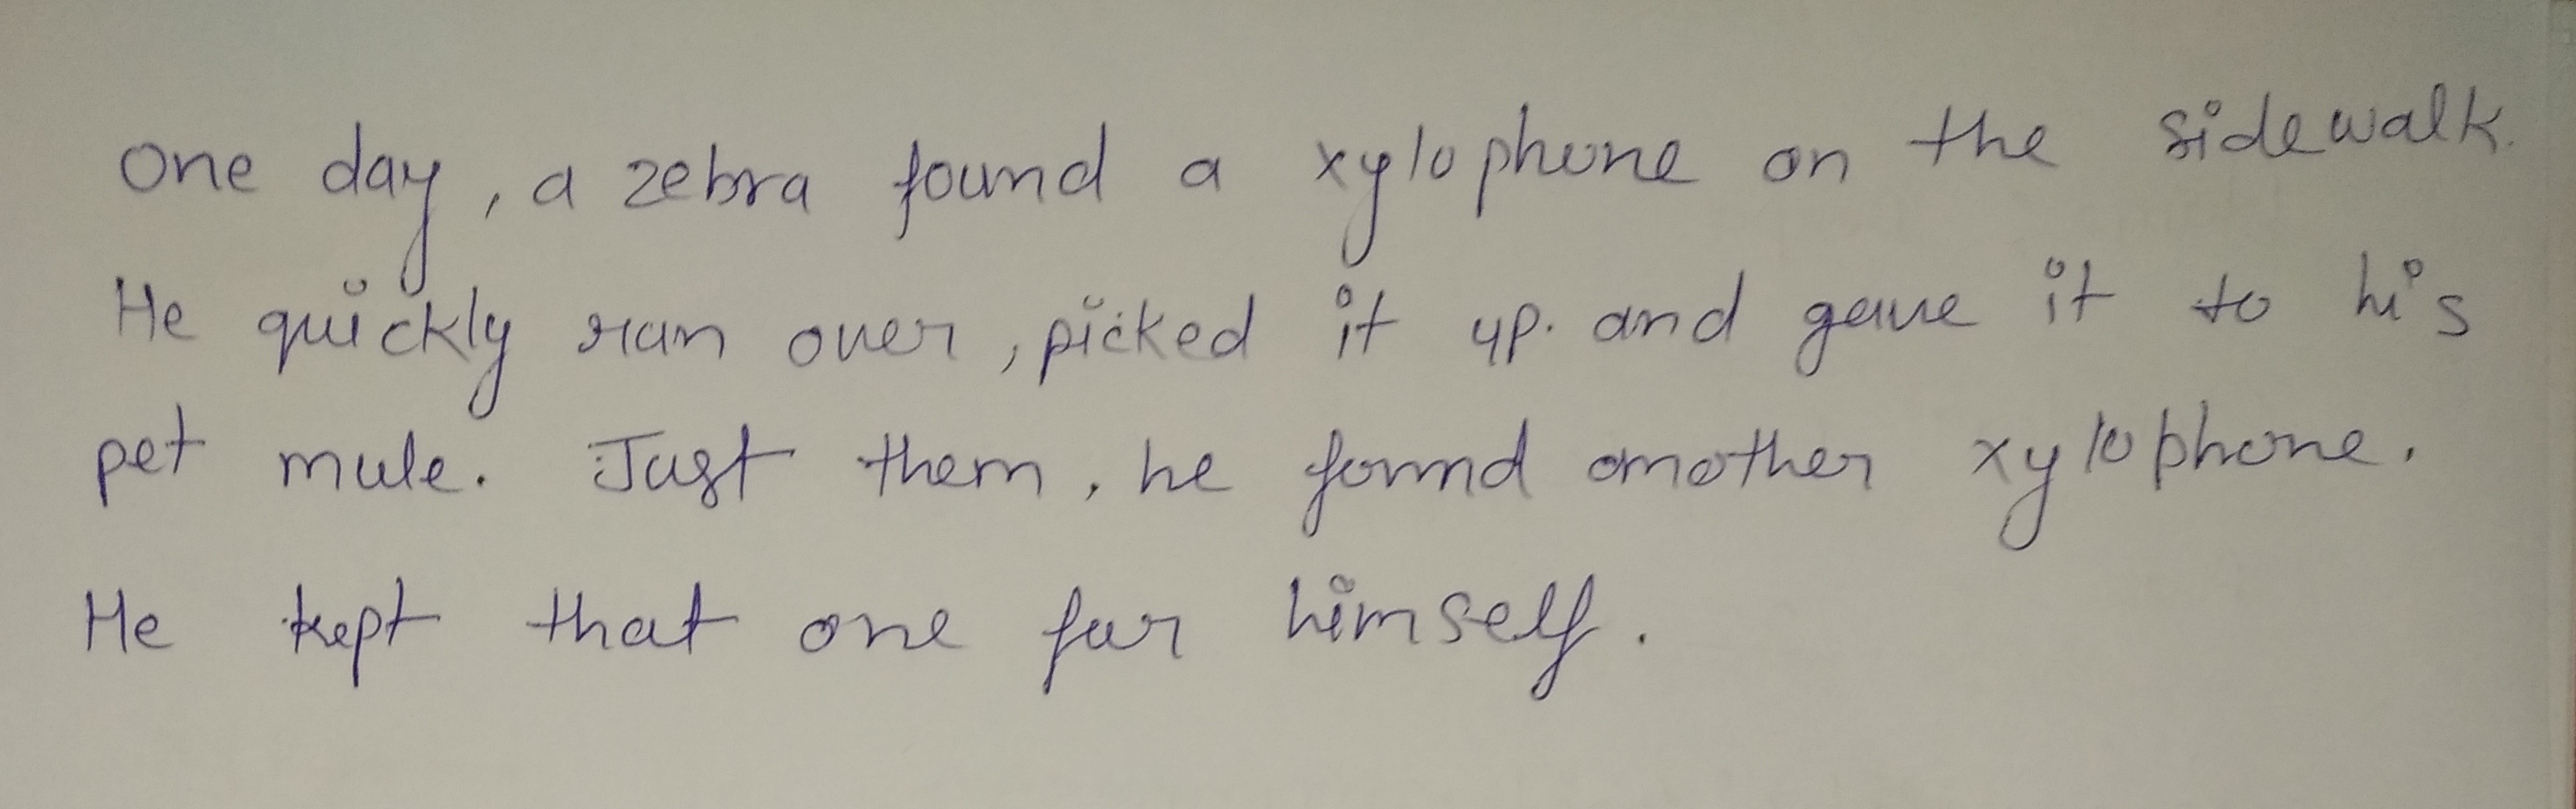 One day, a zebra found a xylophone on the sidewalk.
He quickly ran over, picked it up. and gave it to his
pet mule. Just then, he found another xylophone.
He kept that one for himself.